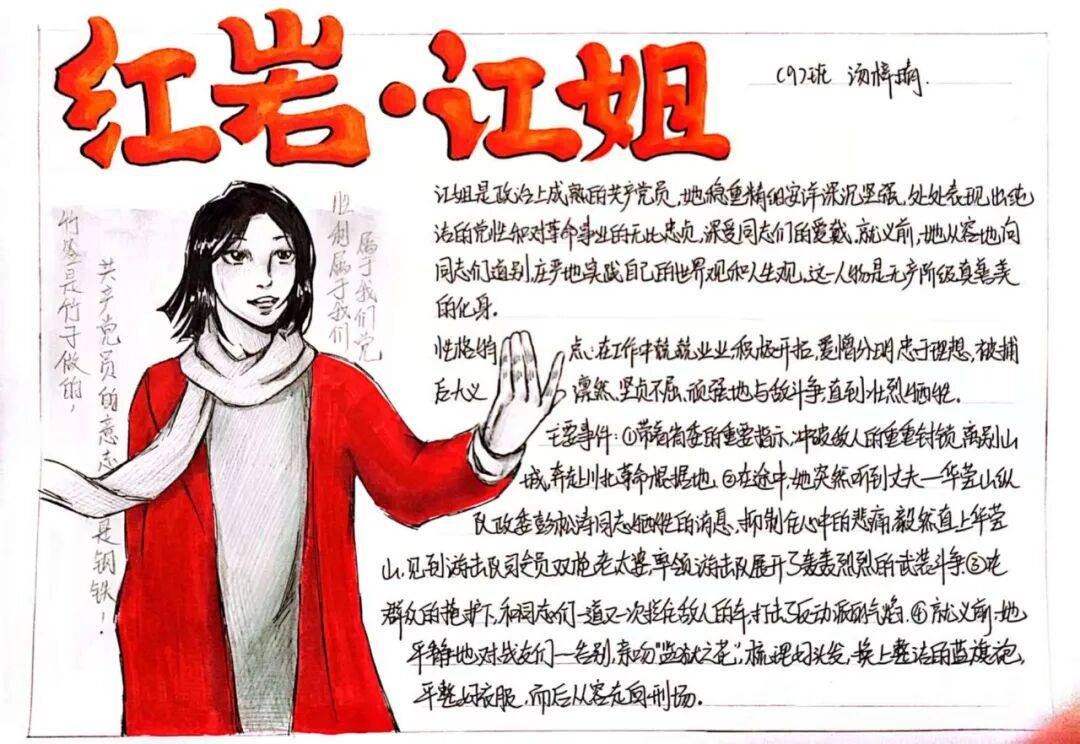 红岩·江姐
(9)班 汤梓晴.
江姐是政治上成熟的共产党员,她稳重精细安详深沉坚强,处处表现出纯
洁的党性和对革命事业的无比忠贞,深受同志们的爱戴,就义前,她从容地向
同志们道别,庄严地实践自己的世界观和人生观,这一人物是无产阶级真善美
的化身。
性格特 点:在工作中兢兢业业积极开拓,爱憎分明忠于理想,被捕
后大义 凛然,坚贞不屈,顽强地与敌斗争,直到壮烈牺牲.
主要事件:①带着省委的重要指示,冲破敌人的重重封锁,离别山
城,奔赴川北革命根据地.②在途中,她突然听到丈夫—华蓥山纵
队政委彭松涛同志牺牲的消息,抑制住心中的悲痛,毅然直上华蓥
山,见到游击队司令员双枪老太婆,率领游击队展开了轰轰烈烈的武装斗争③在
群众的掩护下,和同志们一道又一次拦住敌人的车,打击了反动派的气焰.④就义前,她
平静地对战友们一一告别,亲吻“监狱之花”,梳理好头发,换上整洁的蓝旗袍,
平整好衣服,而后从容走向刑场。
竹签是竹子做的,
共产党员的意志 是钢铁!
胜利属于我们
属于我们党